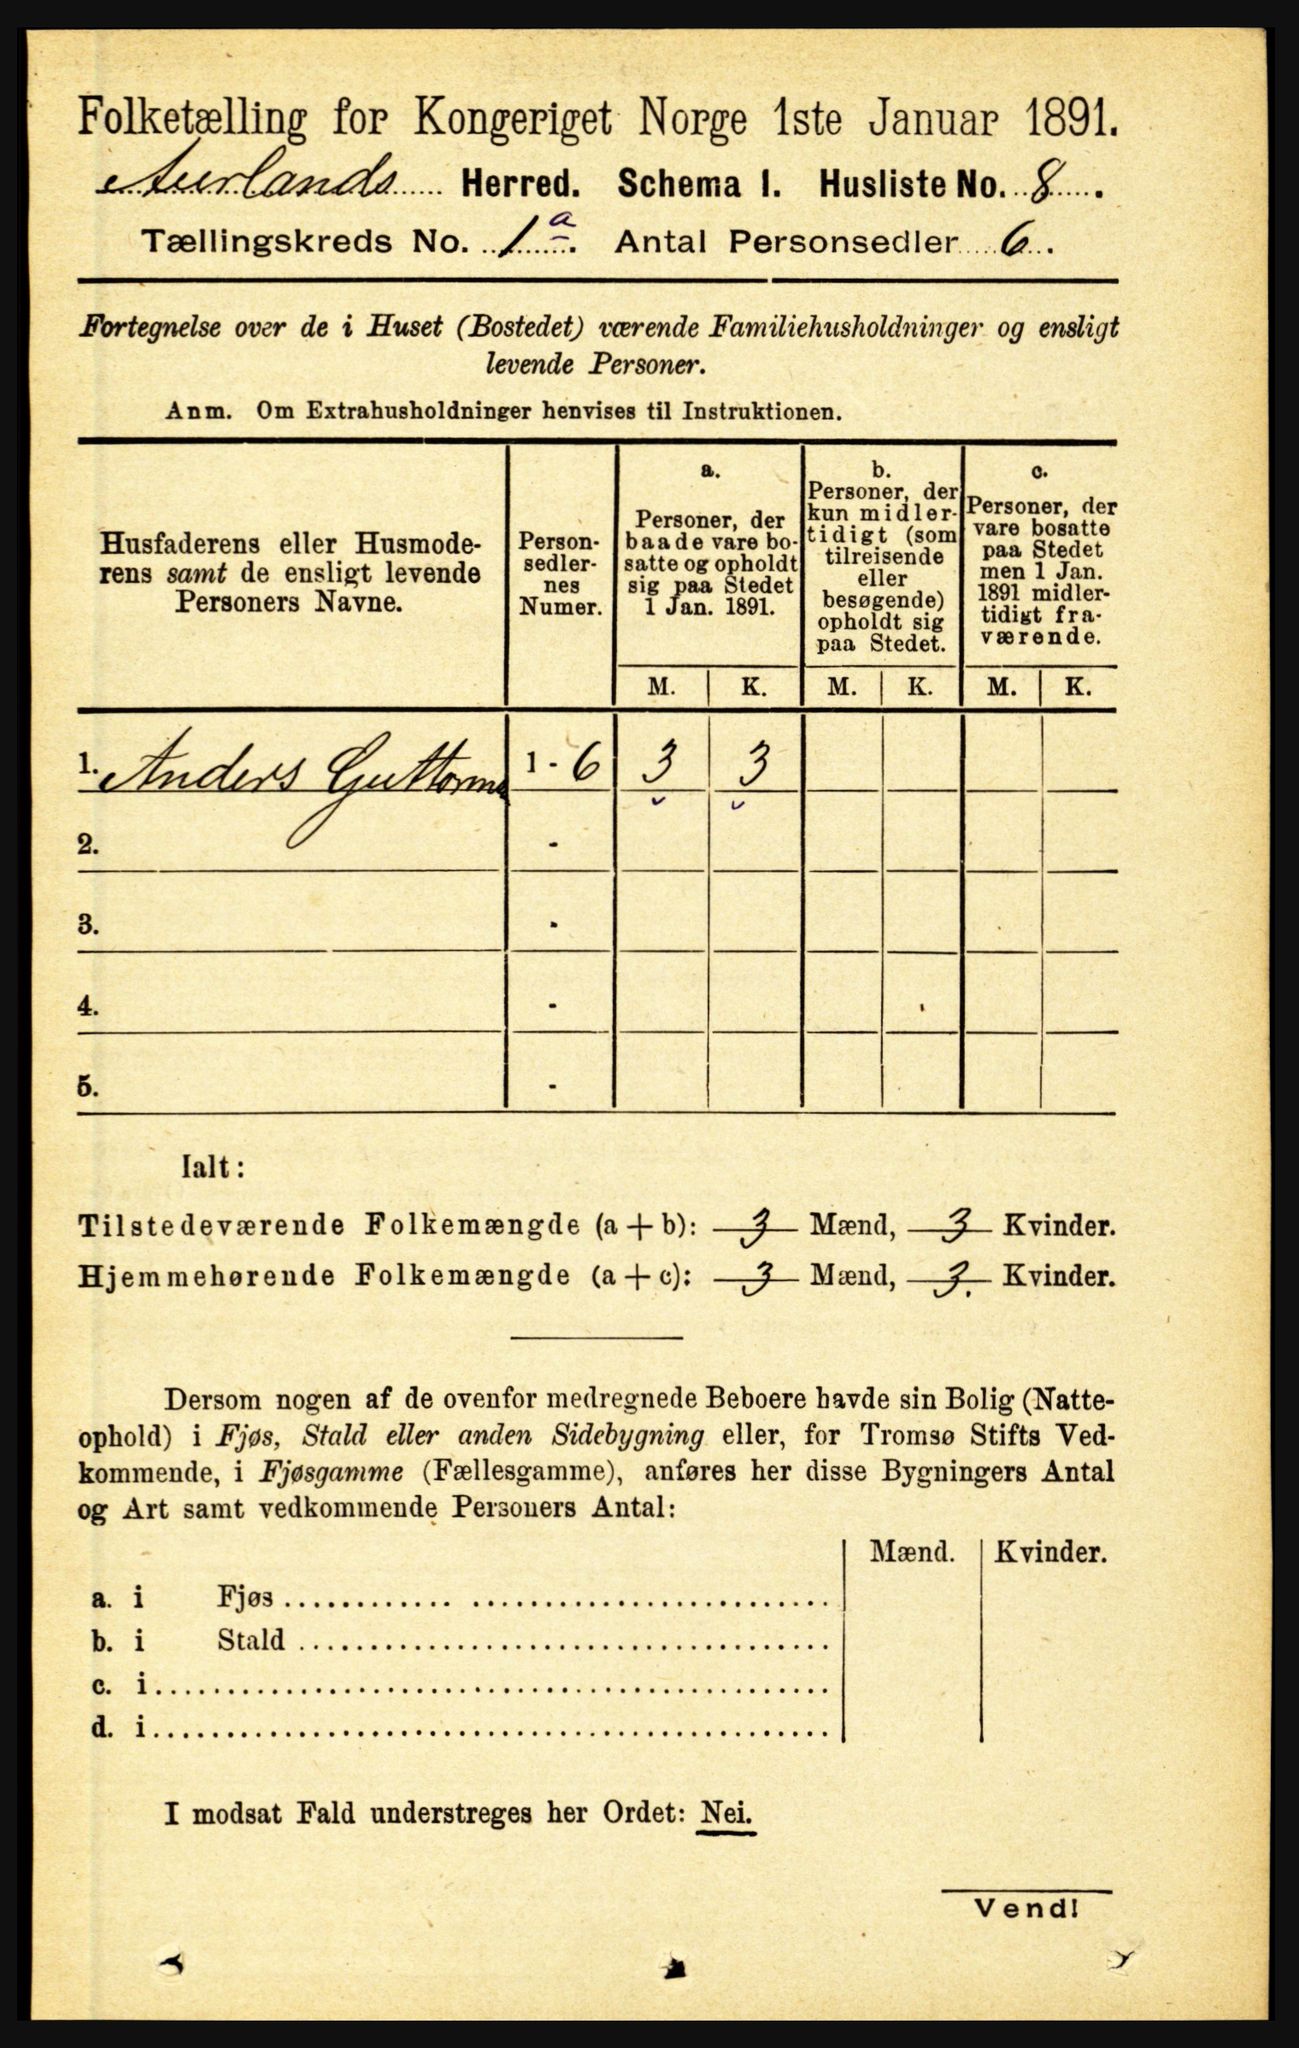 Folketælling for Kongeriget Norge 1ste Januar 1891.
Aurlands Herred. Schema I. Husliste No. 8.
Tællingskreds No. 1a. Antal Personsedler 6.
Fortegnelse over de i Huset (Bostedet) værende Familiehusholdninger og ensligt
levende Personer.
Anm. Om Extrahusholdninger henvises til Instruktionen.
Husfaderens eller Husmode-
rens samt de ensligt levende
Personers Navne.
Person-
sedler-
nes
Numer.
a.
Personer, der
baade vare bo-
satte og opholdt
sig paa Stedet
1 Jan. 1891.
b.
Personer, der
kun midler-
tidigt (som
tilreisende
eller
besøgende)
opholdt sig
paa Stedet.
c.
Personer, der
vare bosatte
paa Stedet
men 1 Jan.
1891 midler-
tidigt fra-
værende.
M. K. M. K. M. K.
1. Anders Guttorms 1 - 6 3 3
2. -
3. -
4. -
5. -
Ialt:
Tilstedeværende Folkemængde (a + b): 3 Mænd, 3 Kvinder.
Hjemmehørende Folkemængde (a + c): 3 Mænd, 3. Kvinder.
Dersom nogen af de ovenfor medregnede Beboere havde sin Bolig (Natte-
ophold) i Fjøs, Stald eller anden Sidebygning eller, for Tromsø Stifts Ved-
kommende, i Fjøsgamme (Fællesgamme), anføres her disse Bygningers Antal
og Art samt vedkommende Personers Antal:
Mænd. Kvinder.
a. i Fjøs
b. i Stald
c. i
d. i
I modsat Fald understreges her Ordet: Nei.
Vend!